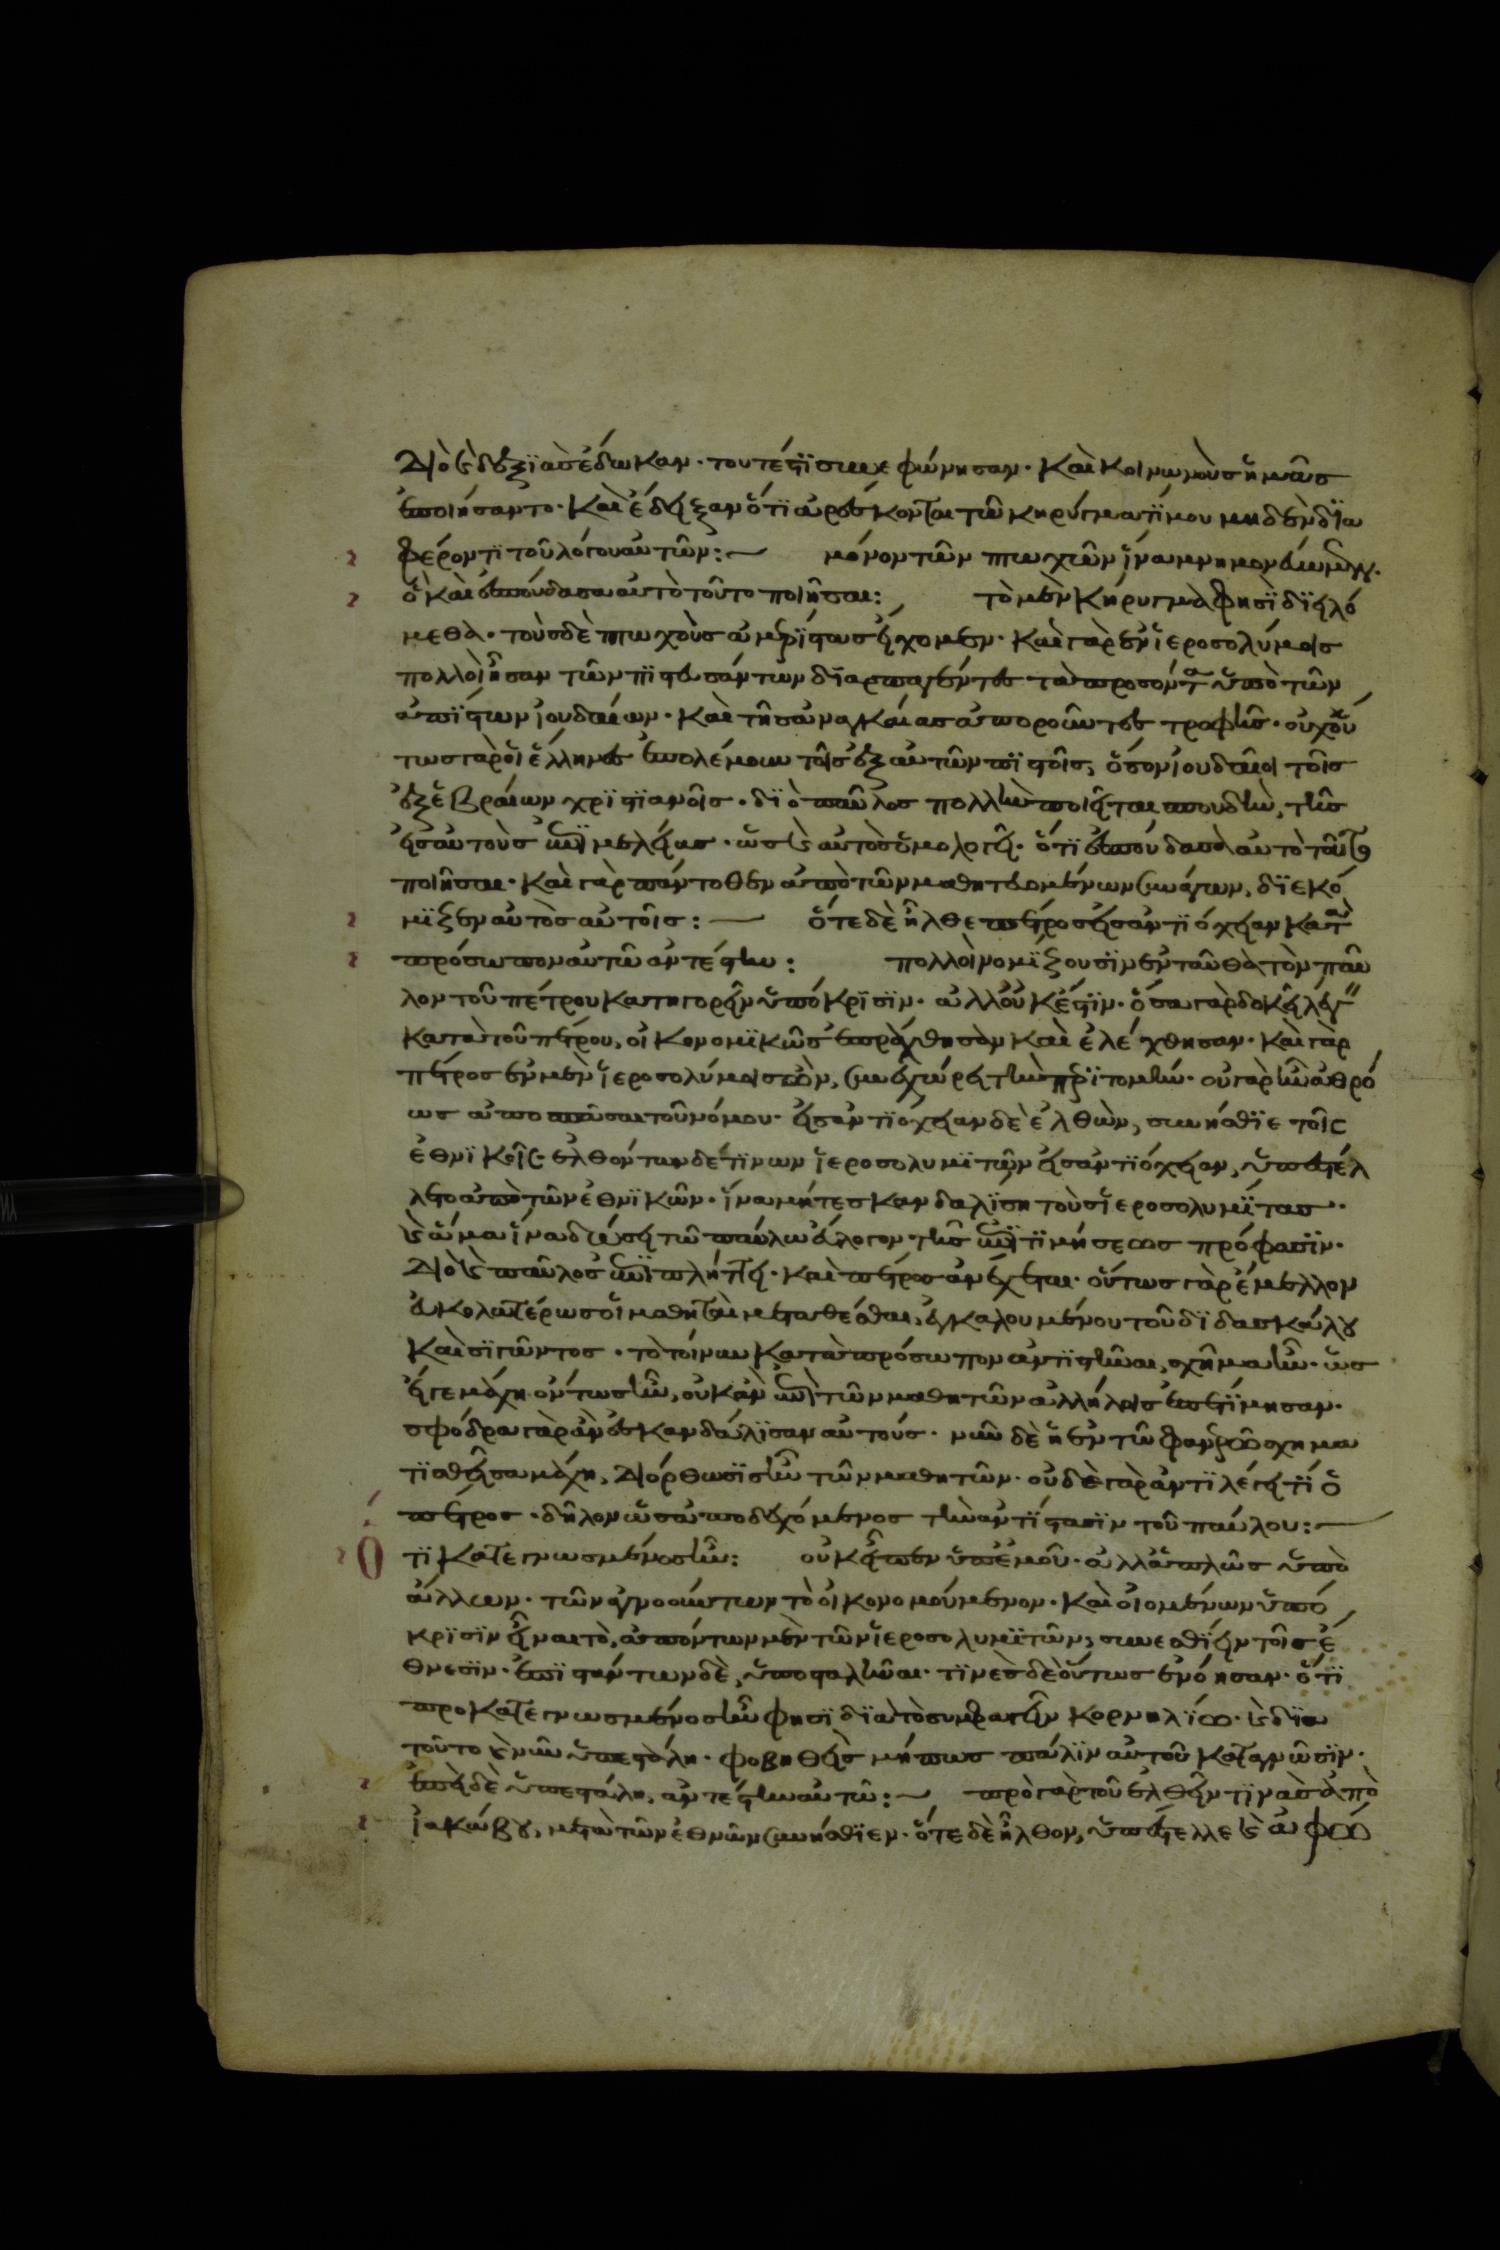 Διὸ καὶ δεξϊὰς ἔδωκαν· τουτέστϊ συνεφώνησαν· καὶ κοινωνοὺς ἡμᾶς
ἐποιήσαντο· καὶ ἔδειξαν ὅτϊ ἀρέσκονται τῶ κηρύγματί μου μηδὲν δϊα
φέροντϊ τοῦ λόγου αὐτῶν: μόνον τῶν πτωχῶν ἵνα μνημονεύωμεν.
ὃ καὶ ἐσπούδασα αὐτὸ τοῦτο ποιῆσαι: τὸ μὲν κήρυγμα φησὶ δϊειλό
μεθα· τοὺς δὲ πτωχοὺς ἀμερίστους εἴχομεν· καὶ γὰρ ἐν ἱεροσολύμοις
πολλοὶ ἦσαν τῶν πϊστευσάντων δϊαρπαγέντες τὰ προσόντα ὑπὸ τῶν
ἀπίστων ἰουδαίων· καὶ τῆς ἀναγκαίας ἀποροῦντες τροφῆς· οὐχ οὕ
τως γὰρ οἱ ἕλληνες ἐπολέμουν τοῖς ἐξ αὐτῶν πϊστοῖς, ὅσον ἰουδαῖοι τοῖς
ἐξ ἑβραίων χρϊστϊανοῖς· δϊὸ παῦλος πολλὴν ποιεῖται σπουδὴν, τῆς
εἰς αὐτοὺς ἐπϊμελείας· ὡς καὶ αὐτὸς ὁμολογεῖ· ὅτι ἐσπούδασα αὐτὸ τοῦτο
ποιῆσαι· καὶ γὰρ πάντοθεν ἀπὸ τῶν μαθητευομένων συνάγων, δϊεκό
μϊζεν αὐτὸς αὐτοῖς: ὅτε δὲ ἦλθε πέτρος εἰς ἀντϊόχειαν κατὰ
πρόσωπον αὐτῶ ἀντέστην: πολλοὶ νομίζουσϊν ἐνταῦθα τὸν παῦ
λον τοῦ πέτρου κατηγορεῖν ὑπόκρϊσϊν· ἀλλ' οὐκ ἔστϊν· ὅσα γὰρ δοκεῖ λέγειν
κατὰ τοῦ πέτρου, οἰκονομϊκῶς ἐπράχθησαν καὶ ἐλέχθησαν· καὶ γὰρ
πέτρος ἐν μὲν ἱεροσολύμοις ὢν, συνεχώρει τὴν περϊτομήν· οὐ γὰρ ἦν ἀθρό
ως ἀποσπάσαι τοῦ νόμου· εἰς ἀντϊόχειαν δὲ ἐλθὼν, συνήσθϊε τοῖς
ἐθνϊκοῖς· ἐλθόντων δέ τϊνων ἱεροσολυμϊτῶν εἰς ἀντϊόχειαν, ὑπεστέλ
λετο ἀπὸ τῶν ἐθνϊκῶν· ἵνα μήτε σκανδαλϊση τοὺς ἱεροσολυμίτας·
καὶ ἅμα ἵνα δώση τῶ παύλω εὔλογον τῆς ἐπϊτϊμήσεως πρόφασϊν·
Διὸ καὶ παῦλος ἐπϊπλήττει· καὶ πέτρος ἀνέχεται· οὕτως γὰρ ἔμελλον
εὐκολωτέρως οἱ μαθηταὶ μετατίθεσθαι, ἐγκαλουμένου τοῦ δϊδασκάλου
καὶ σϊγῶντος· τὸ τοίνυν κατὰ πρόσωπον ἀντϊστῆναι, σχῆμα ἦν· ὡς
εἴγε μάχη ὄντως ἦν, οὐκ ἂν ἐπὶ τῶν μαθητῶν ἀλλήλοις ἐπετίμησαν·
σφόδρα γὰρ ἂν ἐσκανδάλϊσαν αὐτούς· νῦν δὲ ἡ ἐν τῶ φανερῶ σχημα
τϊσθεῖσα μάχη, διόρθωσϊς ἦν τῶν μαθητῶν· οὐδὲ γὰρ ἀντϊλέγει τὶ ὁ
πέτρος· δῆλον ὡς ἀποδεχόμενος τὴν ἀντίστασϊν τοῦ παύλου:
Οτϊ κατεγνωσμένος ἦν: οὐκ εἶπεν ὑπ' ἐμοῦ· ἀλλ' ἁπλῶς ὑπὸ
ἄλλων· τῶν ἀγνοούντων τὸ οἰκονομούμενον· καὶ οἰομένων ὑπό
κρϊσϊν εἶναι τὸ, ἀπόντων μὲν τῶν ἱεροσολυμϊτῶν, συνεσθίειν τοῖς ἔ
θνεσϊν· ἐπϊστάντων δὲ, ὑποσταλῆναι· τϊνὲς δὲ οὕτως ἐνόησαν· ὅτϊ
προκατεγνωσμένος ἦν φησϊ δϊὰ τὸ συμφαγεῖν κορνηλίω· καὶ δϊὰ
τοῦτο καὶ νῦν ὑπεστάλη· φοβηθεὶς μήπως πάλϊν αὐτοῦ καταγνῶσϊν·
ἐπεὶ δὲ ὑπεστάλη, ἀντέστην αὐτῶ: πρὸ γὰρ τοῦ ἐλθεῖν τϊνὰς ἀπὸ
ἰακώβου, μετὰ τῶν ἐθνῶν συνήσθϊεν· ὅτε δὲ ἦλθον, ὑπέστελλε καὶ ἀφώ